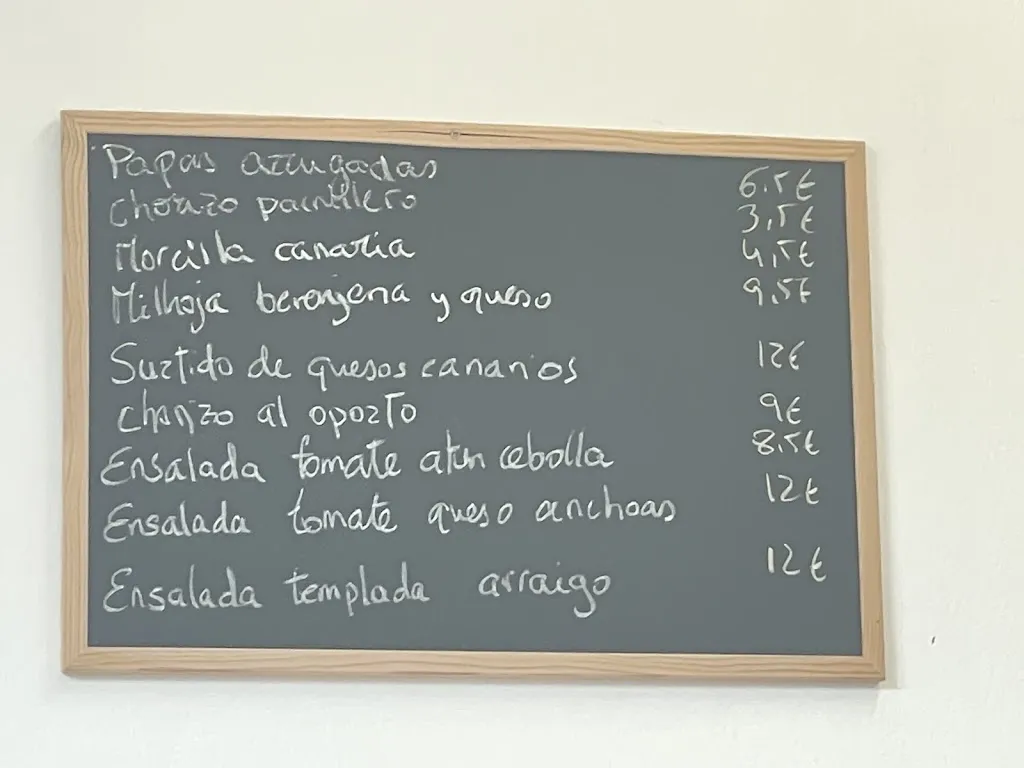 Papas arrugadas 6,5€
Chorizo parrillero 3,5€
Morcilla canaria 4,5€
Milhoja berenjena y queso 9,5€
Surtido de quesos canarios 12€
Chorizo al oporto 9€
Ensalada tomate atun cebolla 8,5€
Ensalada tomate queso anchoas 12€
Ensalada templada arraigo 12€